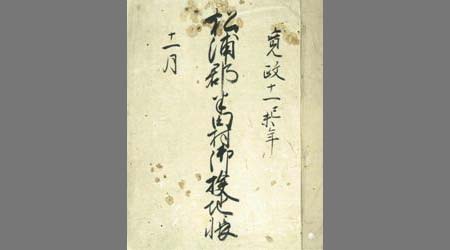 寛政十一己未年
松浦郡半田村御検地帳
十一月